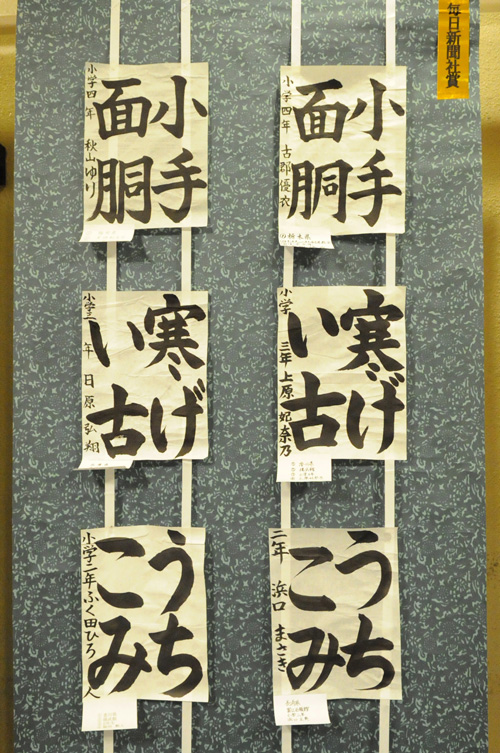 毎日新聞社賞
小手
面胴
小学四年 古郡優衣
小手
面胴
小学四年 秋山ゆり
寒げ
い古
小学三年 上原妃奈乃
寒げ
い古
小学三年 日原弘翔
うち
こみ
二年 浜口まさき
うち
こみ
小学二年ふく田ひろ人